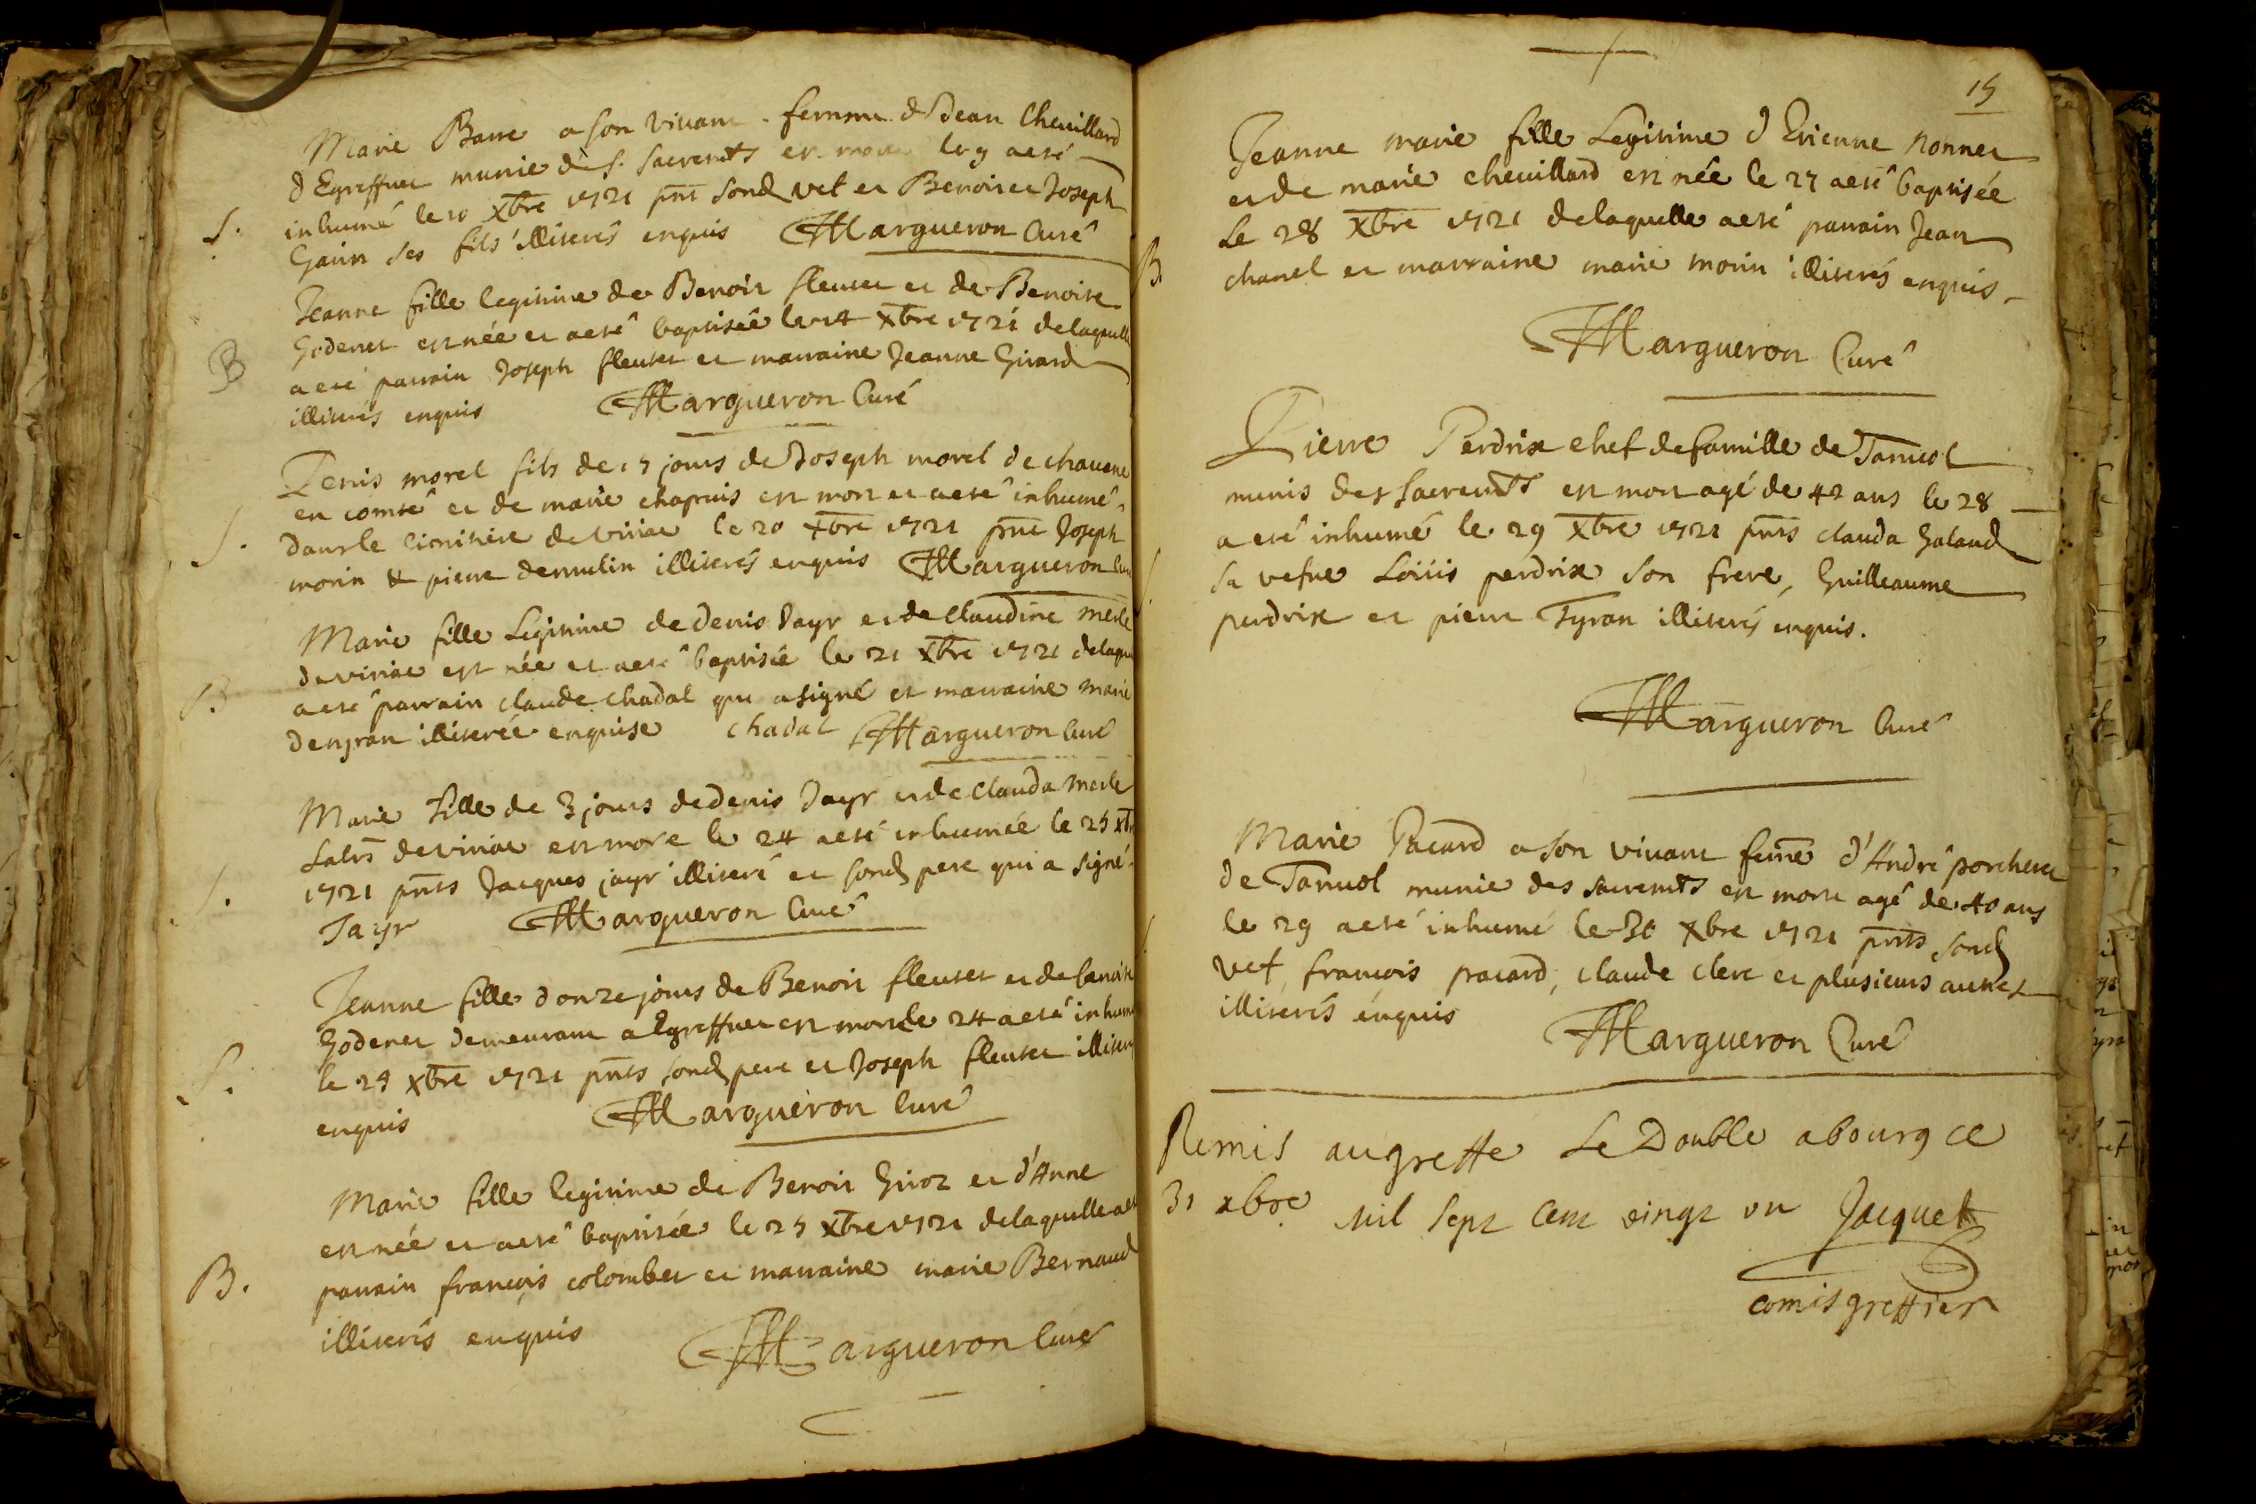 Marie Barre a son vivant femme de Jean Chevillard
d Egreffuet munie de s. sacremts est morte le 9 a eté
S. inhumé le 10 Xbre 1721 pnt sond vet et Benoit et Joseph
Garin ses fils illiterés enquis Margueron Curé
Jeanne fille legitime de Benoit fleutet et de Benoite
B Godenet est née et a eté baptisée le 14 Xbre 1721 de laquelle
a eté parrain Joseph fleutet et marraine Jeanne Girard
illiterés enquis Margueron Curé
Denis morel fils de 15 jours de Joseph morel de chavane
en comté et de marie chapuis est mort et a eté inhumé
S. dans le cimitiere de viriat le 20 Xbre 1721 pnt Joseph
morin & pierre demulin illiterés enquis Margueron Curé
Marie fille Legitime de Denis Jayr et de Claudine merle
de viriat est née et a eté baptisée le 21 Xbre 1721 de laque
B. a eté parrain claude chadal qui a signé et marraine marie
denyran illiterée enquise chadal Margueron Curé
Marie fille de 3 jours de Denis Jayr et de Clauda merle
Labrs de viriat est morte le 24 a eté inhumée le 25 xbre
S. 1721 pnts Jacques jayr illiteré et sond pere qui a signé
Jayr Margueron Curé
Jeanne fille d onze jours de Benoit fleutet et de benoite
Godenet demeurant a Egreffuet est morte le 24 a eté inhumé
S. le 25 Xbre 1721 pnts sond pere et Joseph fleutet illiterés
enquis Margueron Curé
Marie fille legitime de Benoit Grioz et d'Anne
est née et a eté baptisée le 25 Xbre 1721 de laquelle a eté
B. parrain françois colombet et marraine marie Bernaud
illiterés enquis Margueron Curé
15
Jeanne marie fille Legitime d Etienne Nonnet
et de marie chevillard est née le 27 a eté baptisée
Le 28 Xbre 1721 de laquelle a eté parrain Jean
B chanel et marraine marie morin illiterés enquis
Margueron Curé
Pierre Perdrix chef de famille de Tanvol
munis des sacremts est mort agé de 42 ans le 28
a eté inhumé le 29 Xbre 1721 pnts clauda Galand
sa vefve Loüis perdrix son frere, Guilleaume
perdrix et pierre Tyran illiterés enquis.
Margueron Curé
Marie Pacard a son vivant feme d'André porcheret
de Tanvol munie des sacremts est morte agé de 40 ans
le 29 a eté inhumé le 30 Xbre 1721 pnts sond
vet, françois pacard, claude clerc et plusieurs autres
illiterés enquis Margueron Curé
Remis au greffe Le Double a bourg ce
31 xbre mil sept cent vingt un Jacquet
comis greffier